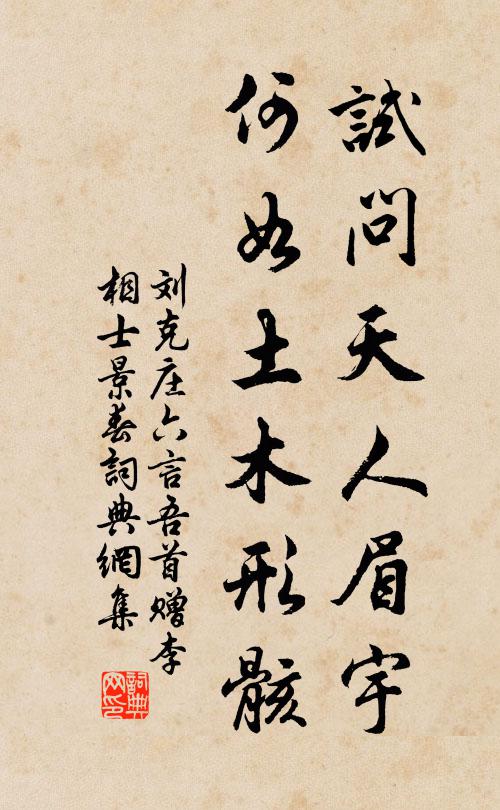 試問天人眉宇
何如土木形骸
刘克庄六言吾首赠李
相士景春詞典網集
詞典網印